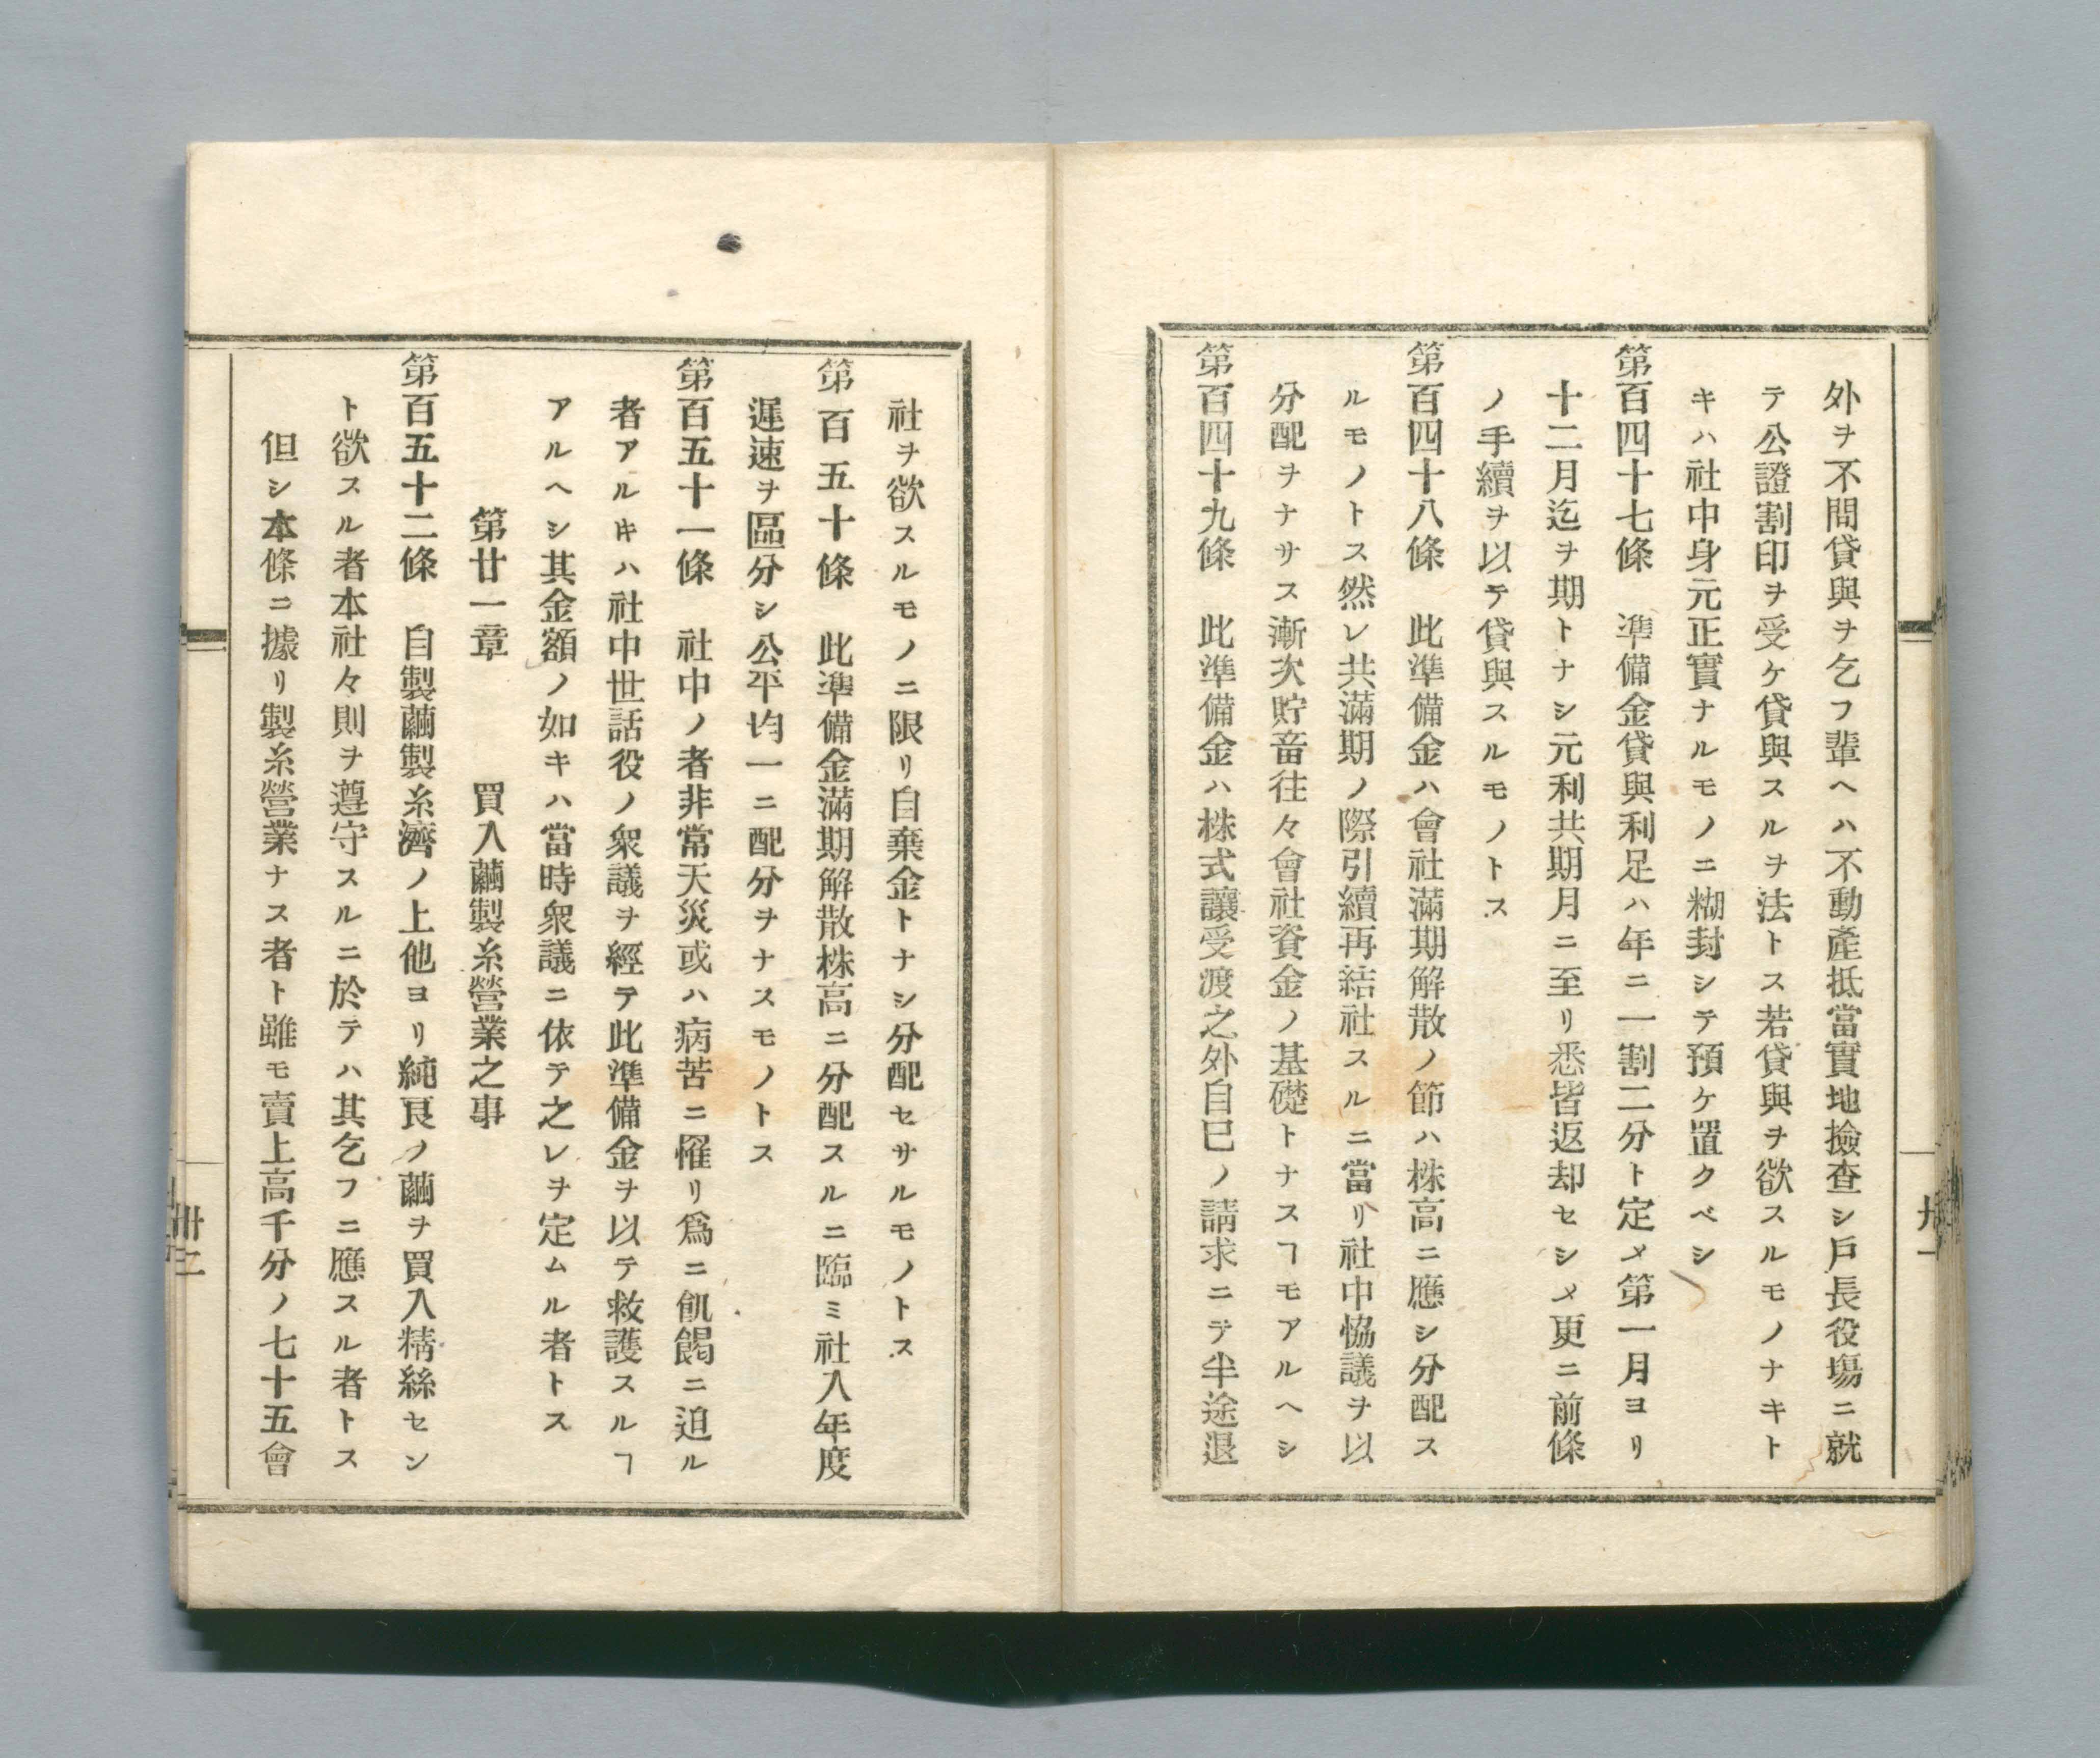 外ヲ不問貸與ヲ乞フ輩ヘハ不動產抵當實地撿査シ戶長役塲ニ就
テ公證割印ヲ受ケ貸與スルヲ法トス若貸與ヲ欲スルモノナキト
キハ社中身元正實ナルモノニ糊封シテ預ケ置クベシ
第百四十七條　準備金貸與利足ハ年ニ一割二分ト定メ第一月ヨリ
十二月迄ヲ期トナシ元利共期月ニ至リ悉皆返却セシメ更ニ前條
ノ手續ヲ以テ貸與スルモノトス
第百四十八條　此準備金ハ會社滿期解散ノ節ハ株高ニ應シ分配ス
ルモノトス然レ共滿期ノ際引續再結社スルニ當リ社中恊議ヲ以
分配ヲナサス漸次貯畜往々會社資金ノ基礎トナスヿモアルヘシ
第百四十九條　此準備金ハ株式讓受渡之外自巳ノ請求ニテ半途退
社ヲ欲スルモノニ限リ自棄金トナシ分配セサルモノトス
第百五十條　此準備金滿期解散株高ニ分配スルニ臨ミ社入年度
遲速ヲ區分シ公平均一ニ配分ヲナスモノトス
第百五十一條　社中ノ者非常天災或ハ病苦ニ罹リ爲ニ飢餲ニ迫ル
者アルキハ社中世話役ノ衆議ヲ經テ此準備金ヲ以テ救護スルヿ
アルヘシ其金額ノ如キハ當時衆議ニ依テ之レヲ定ムル者トス
第廿一章　買入繭製糸營業之事
第百五十二條　自製繭製糸濟ノ上他ヨリ純良ノ繭ヲ買入精絲セン
ト欲スル者本社々則ヲ遵守スルニ於テハ其乞フニ應スル者トス
但シ本條ニ據リ製糸營業ナス者ト雖モ賣上高千分ノ七十五會
卅二